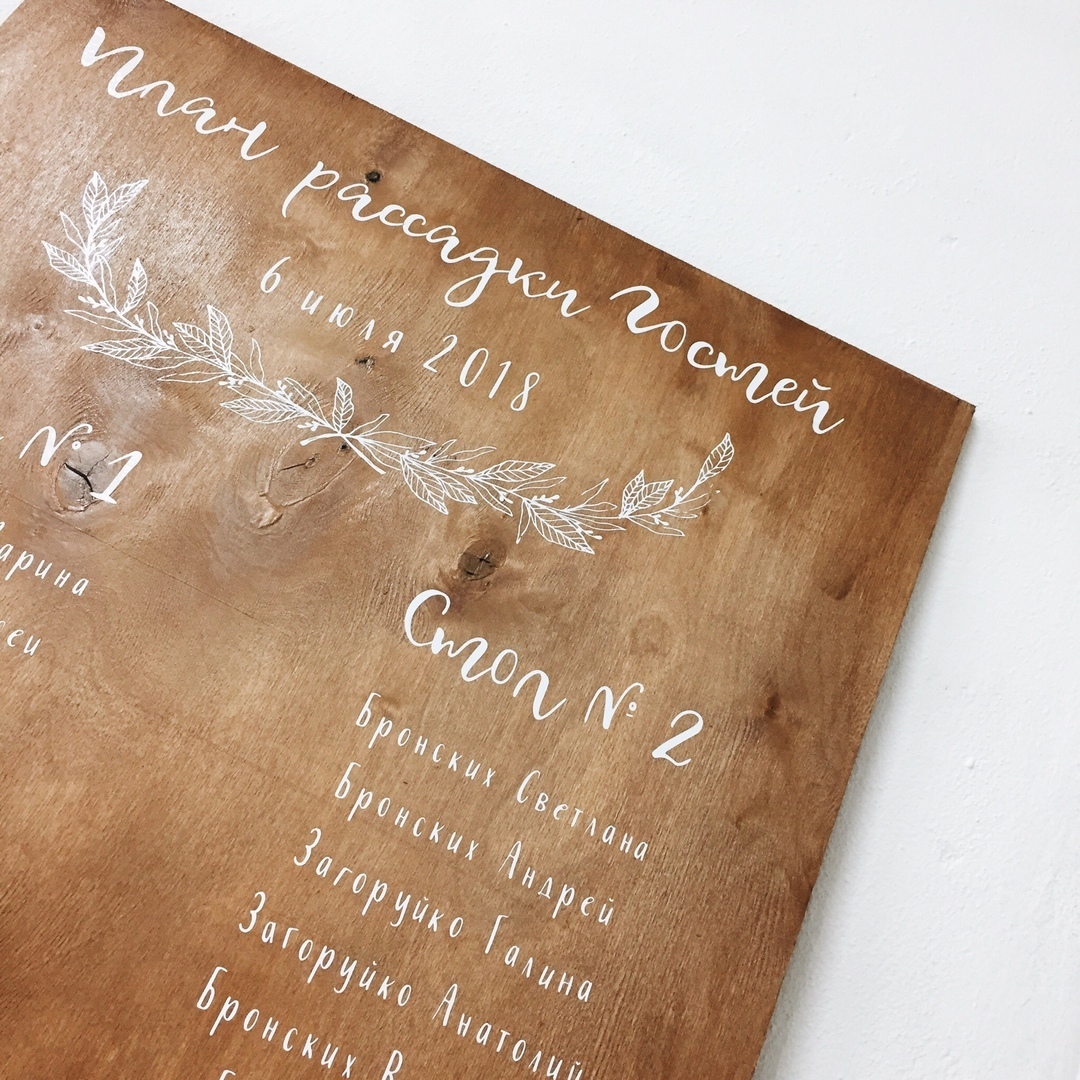 План рассадки Гостей
6 июля 2018
№ 1
Стол № 2
Бронских Светлана
Бронских Андрей
Загоруйко Галина
Загоруйко Анатолий
Бронских